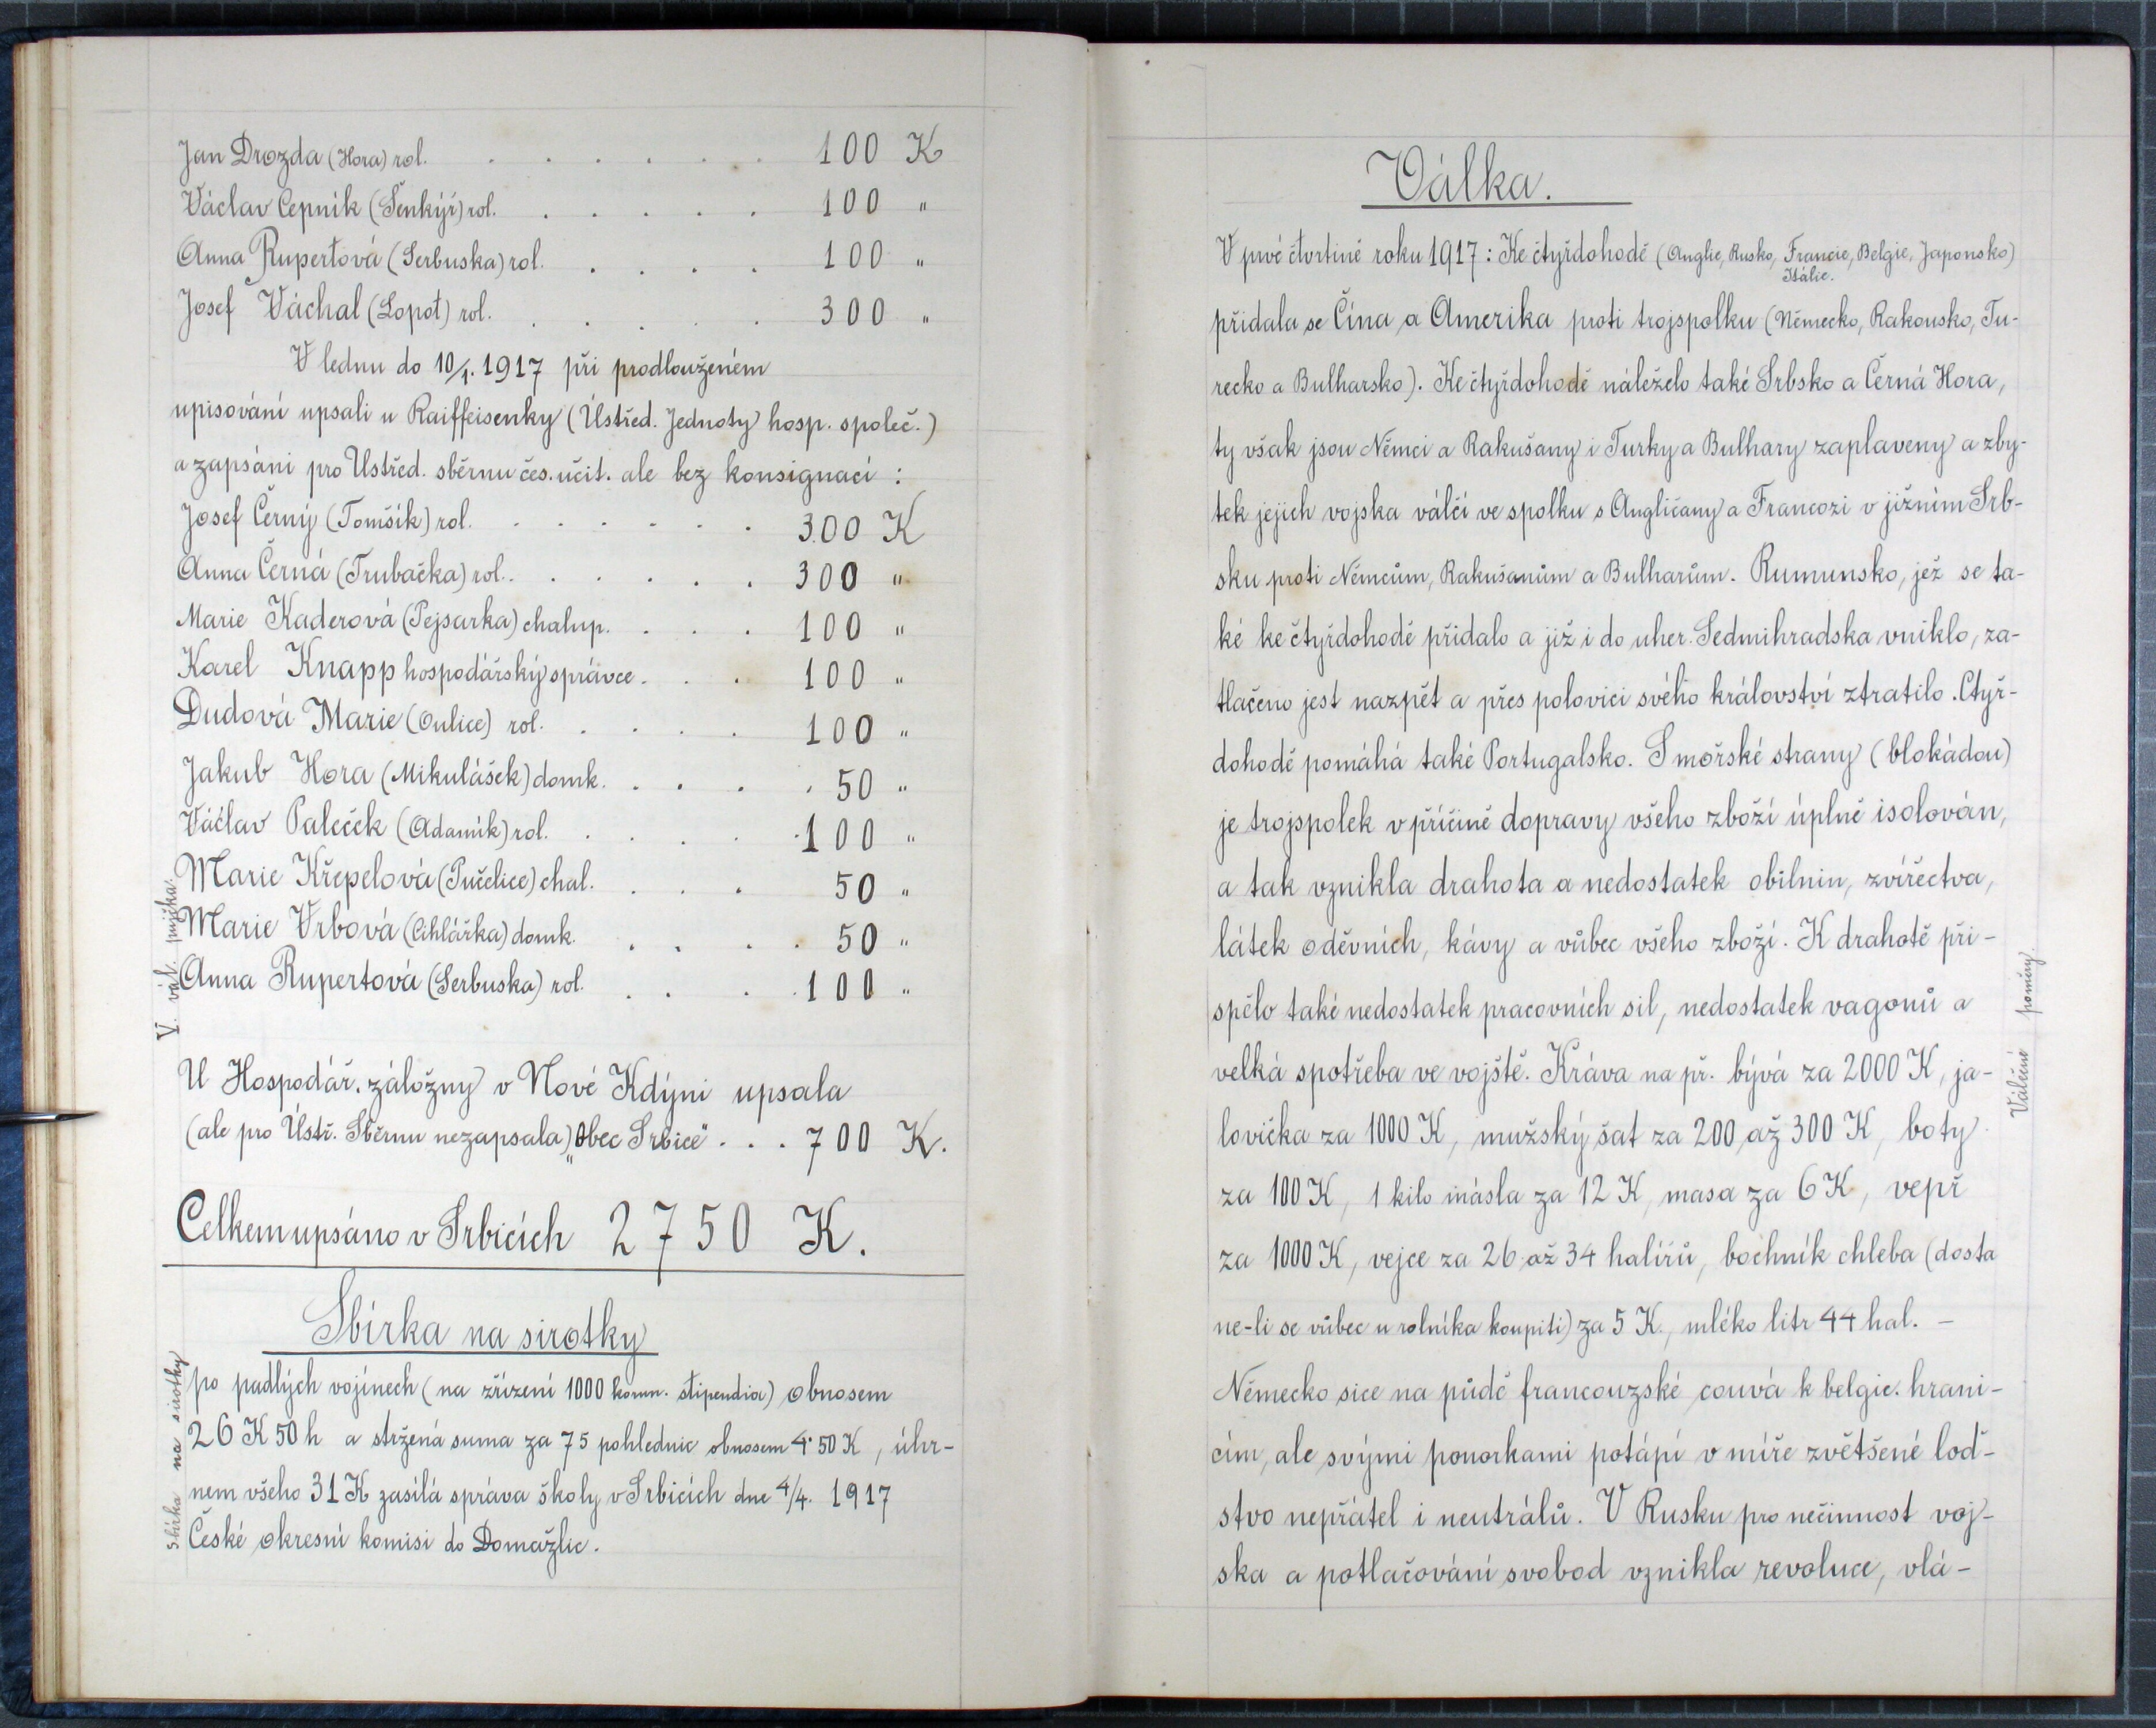 Jan Drozda (Hora) rol. . . . . . . 100 K
Václav Cepník (Šenkýř) rol. . . . . . 100 "
Anna Rupertová (Serbuska) rol. . . . . 100 "
Josef Váchal (Lopot) rol. . . . . . 300 "
V lednu do 10/1. 1917 při prodlouženém
upisování upsali u Raiffeisenky (Ústřed. Jednoty hosp. společ.)
a zapsáni pro Ústřed. sběrnu čes. učit. ale bez konsignací :
Josef Černý (Tomšík) rol. . . . . . . 300 K
Anna Černá (Trubačka) rol. . . . . . 300 "
Marie Kaderová (Pejsarka) chalup. . . . 100 "
Karel Knapp hospodářský správce . . . 100 "
Dudová Marie (Oulice) rol. . . . . 100 "
Jakub Hora (Mikulášek) domk. . . . . 50 "
Václav Paleček (Adamík) rol. . . . . 100 "
Marie Křepelová (Pučelice) chal. . . . 50 "
Marie Vrbová (Cihlářka) domk. . . . . 50 "
Anna Rupertová (Serbuska) rol. . . . 100 "
V. vál. půjčka.
U Hospodář. záložny v Nové Kdýni upsala
(ale pro Ústř. Sběrnu nezapsala) „Obec Srbice" . . . 700 K.
Celkem upsáno v Srbicích 2750 K.
Sbírka na sirotky
po padlých vojínech (na zřízení 1000 korun. stipendia) obnosem
26 K 50 h a stržená suma za 75 pohlednic obnosem 4·50 K, úhr-
nem všeho 31 K zasílá správa školy v Srbicích dne 4/4. 1917
České okresní komisi do Domažlic.
Sbírka na sirotky
Válka.
V prvé čtvrtině roku 1917 : Ke čtyřdohodě (Anglie, Rusko, Francie, Belgie, Japonsko)
Itálie.
přidala se Čína a Amerika proti trojspolku (Německo, Rakousko, Tu-
recko a Bulharsko). Ke čtyřdohodě náleželo také Srbsko a Černá Hora,
ty však jsou Němci a Rakušany i Turky a Bulhary zaplaveny a zby-
tek jejich vojska válčí ve spolku s Angličany a Francozi v jižním Srb-
sku proti Němcům, Rakušanům a Bulharům. Rumunsko, jež se ta-
ké ke čtyřdohodě přidalo a již i do uher. Sedmihradska vniklo, za-
tlačeno jest nazpět a přes polovici svého království ztratilo. Čtyř-
dohodě pomáhá také Portugalsko. S mořské strany (blokádou)
je trojspolek v příčině dopravy všeho zboží úplně isolován,
a tak vznikla drahota a nedostatek obilnin, zvířectva,
látek oděvních, kávy a vůbec všeho zboží. K drahotě při-
spělo také nedostatek pracovních sil, nedostatek vagonů a
velká spotřeba ve vojště. Kráva na př. bývá za 2000 K, ja-
lovička za 1000 K, mužský šat za 200 až 300 K, boty
za 100 K, 1 kilo másla za 12 K, masa za 6 K, vepř
za 1000 K, vejce za 26 až 34 halířů, bochník chleba (dosta
ne-li se vůbec u rolníka koupiti) za 5 K., mléko litr 44 hal. –
Německo sice na půdě francouzské couvá k belgic. hrani-
cím, ale svými ponorkami potápí v míře zvětšené loď-
stvo nepřátel i neutrálů. V Rusku pro nečinnost voj-
ska a potlačování svobod vznikla revoluce, vlá-
Válečné poměry